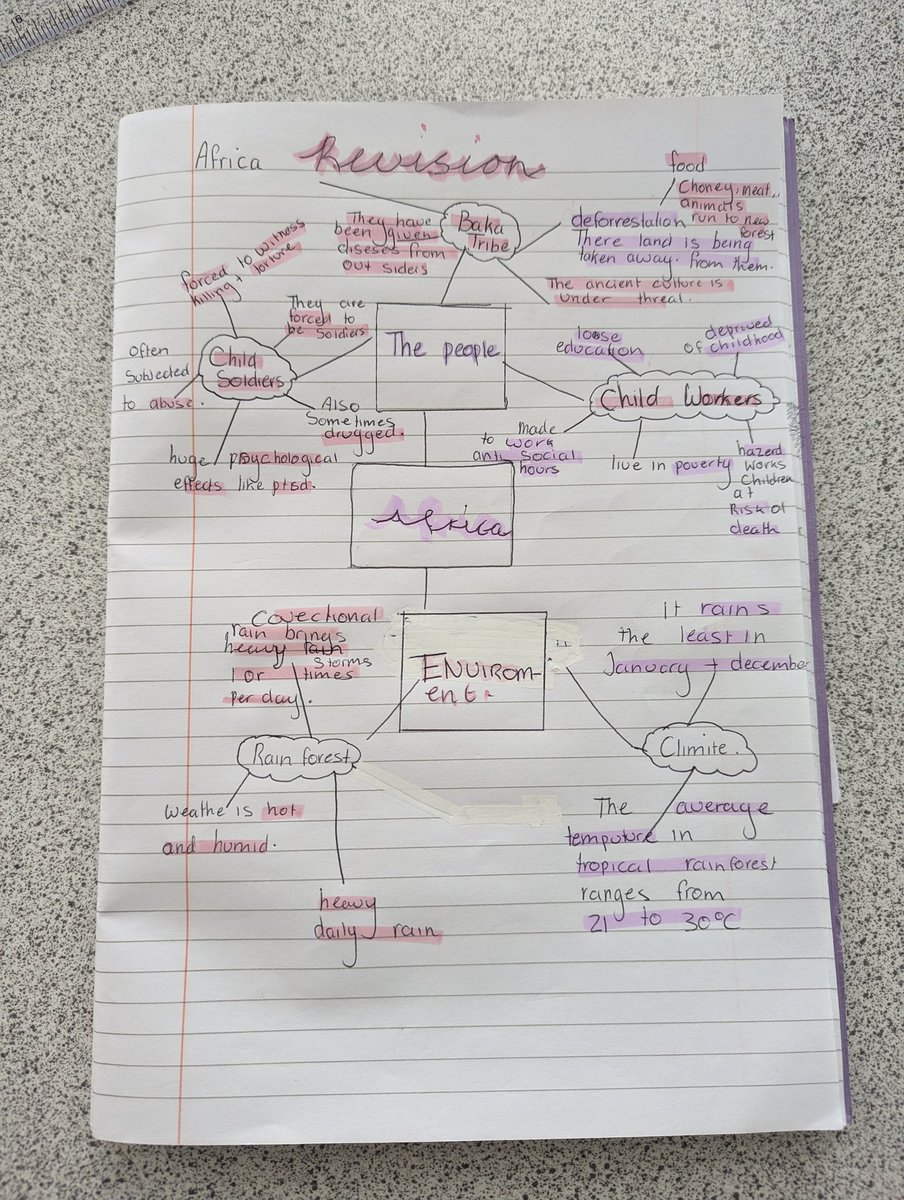 Africa Revision
Baka
Tribe
They have
been given
diseses from
out siders
food
(honey, meat,
animals
run to new
forest
deforrestation
There land is being
taken away. from them.
The ancient culture is
under threat.
The people
Child
Soldiers
forced to witness
killing + torture
They are
forced to
be soldiers
Often
subjected
to abuse.
Also
Sometimes
drugged.
huge psychological
effects like ptsd.
Child Workers
loose
education
deprived
of childhood
made
to work
anti social
hours
live in poverty
hazerd
works
Children
at
Risk of
death
Africa
Envirom-
ent
Rain forest
Covectional
rain brings
heavy rain
storms
1 or times
per day.
weathe is hot
and humid.
heavy
daily rain
Climite.
it rains
the least in
January + december
The average
temputure in
tropical rainforest
ranges from
21 to 30°C